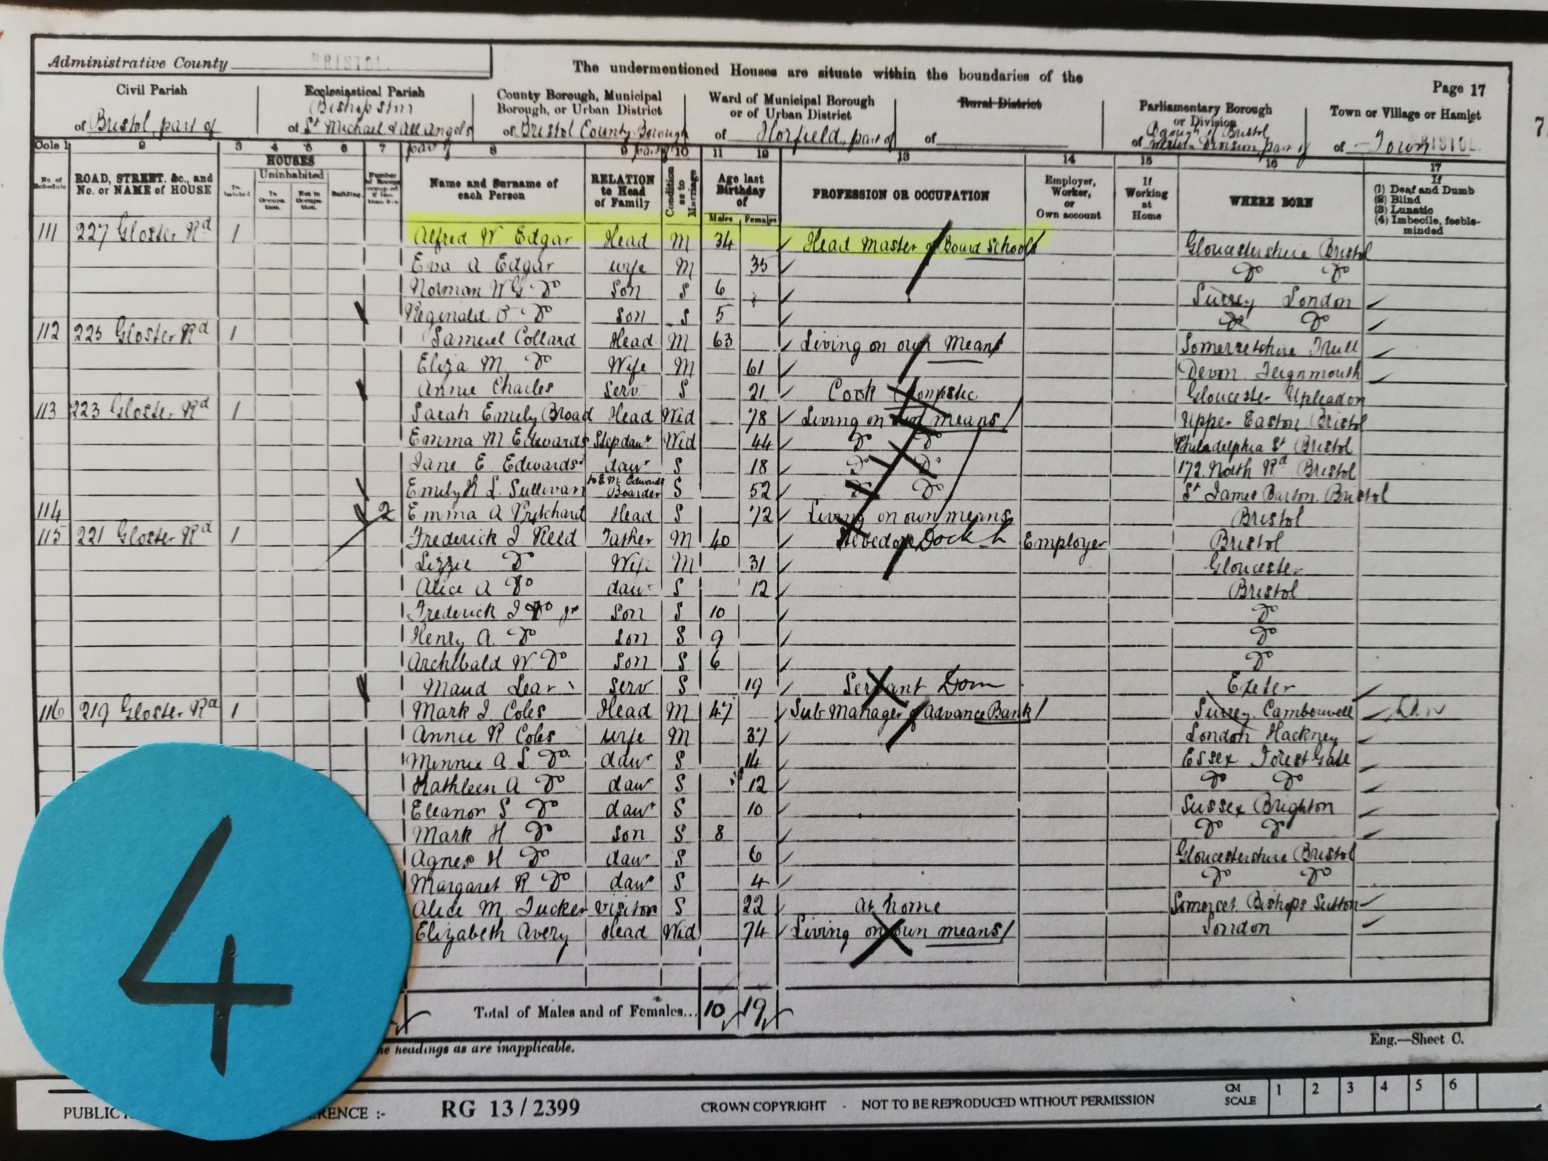 Administrative County BRISTOL
The undermentioned Houses are situate within the boundaries of the
Page 17
Civil Parish
of Bristol, part of
Ecclesiastical Parish
Bishopston
of St Michael & All Angels
part of
County Borough, Municipal Borough, or Urban District
of Bristol County Borough
part of
Ward of Municipal Borough or of Urban District
of Horfield, part of
Rural District
of
Parliamentary Borough or Division
of Borough of Bristol
part of
Town or Village or Hamlet
of Town BRISTOL
Cols 1 2 3 4 5 6 7 8 9 10 11 12 13 14 15 16 17
No. of Schedule
ROAD, STREET, &c., and No. or NAME of HOUSE
HOUSES
Inhabited
Uninhabited
In Occupation.
Not in Occupation.
Building
Name and Surname of each Person
RELATION to Head of Family
Condition as to Marriage
Age last Birthday of
Males Females
PROFESSION OR OCCUPATION
Employer, Worker, or Own account
If Working at Home
WHERE BORN
If (1) Deaf and Dumb (2) Blind (3) Lunatic (4) Imbecile, feeble-minded
111 227 Gloster Rd 1 Alfred W Edgar Head M 34 Head Master of Board School Gloucestershire Bristol
Eva A Edgar wife M 35 Do Do
Norman W G Do Son S 6 Surrey London
Reginald Do Son S 5 Do Do
112 225 Gloster Rd 1 Samuel Collard Head M 63 Living on own Means Somersetshire Trull
Eliza M Do Wife M 61 Devon Teignmouth
Annie Charles Serv S 21 Cook Domestic Gloucester Upleadon
113 223 Gloster Rd 1 Sarah Emily Broad Head Wid 78 Living on own means Upper Easton Bristol
Emma M Edwards Stepdaur Wid 44 Do Do Philadelphia St Bristol
Jane E Edwards daur S 18 Do Do 172 North Rd Bristol
to E M Edwards
Emily L Sullivan Boarder S 52 Do Do St James Barton Bristol
114 2 Emma A Pritchard Head S 72 Living on own means Bristol
115 221 Gloster Rd 1 Frederick J Field Father M 40 Dock Employer Bristol
Lizzie Do Wife M 31 Gloucester
Alice A Do daur S 12 Bristol
Frederick J Do jr Son S 10 Do
Henry A Do Son S 9 Do
Archibald W Do Son S 6 Do
Maud Lear Serv S 19 Servant Dom Exeter
116 219 Gloster Rd 1 Mark J Coles Head M 47 Sub Manager of Advance Bank Surrey Camberwell
Annie R Coles wife M 37 London Hackney
Minnie A L Do daur S 14 Essex Forest Gate
Kathleen A Do daur S 12 Do Do
Eleanor S Do daur S 10 Sussex Brighton
Mark H Do Son S 8 Do Do
Agnes H Do daur S 6 Gloucestershire Bristol
Margaret R Do daur S 4 Do Do
Alice M Tucker Visitor S 22 At home Somerset Bishops Sutton
Elizabeth Avery Head Wid 74 Living on own means London
Total of Males and of Females... 10 19
4
headings as are inapplicable.
Eng.—Sheet C.
PUBLIC
ERENCE :- RG 13 / 2399
CROWN COPYRIGHT - NOT TO BE REPRODUCED WITHOUT PERMISSION
CM SCALE 1 2 3 4 5 6